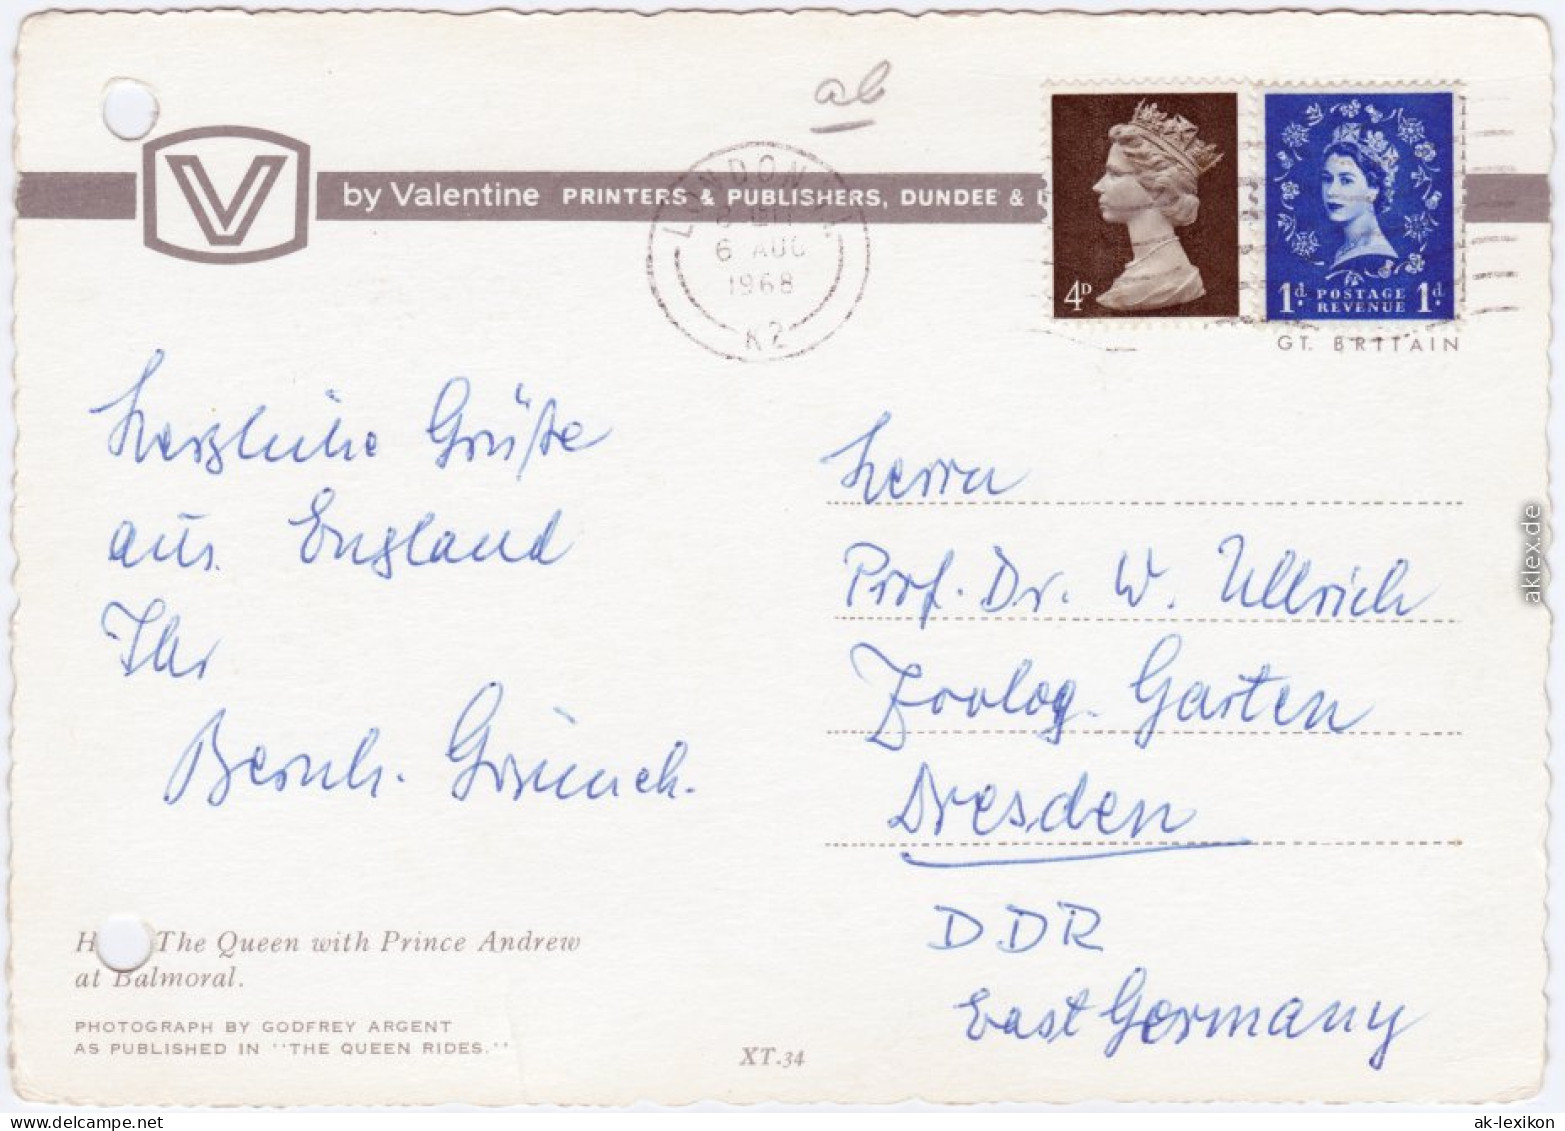 ab
V
by Valentine PRINTERS & PUBLISHERS, DUNDEE &
LONDON
6 AUG
1968
K2
4D
1d. POSTAGE REVENUE 1d.
GT. BRITAIN
Herzliche Grüße
aus England
Ihr
Bernh.
Herrn
Prof. Dr. W. Ullrich
Zoolog. Garten
Dresden
DDR
East Germany
The Queen with Prince Andrew
at Balmoral.
PHOTOGRAPH BY GODFREY ARGENT
AS PUBLISHED IN "THE QUEEN RIDES."
XT.34
aklex.de
ak-lexikon